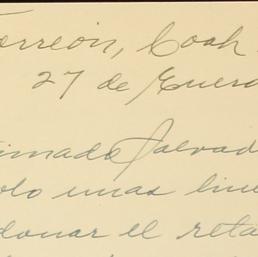 Torreón, Coah
27 de Enero
timado Salvad
olo unas line
donar el reta